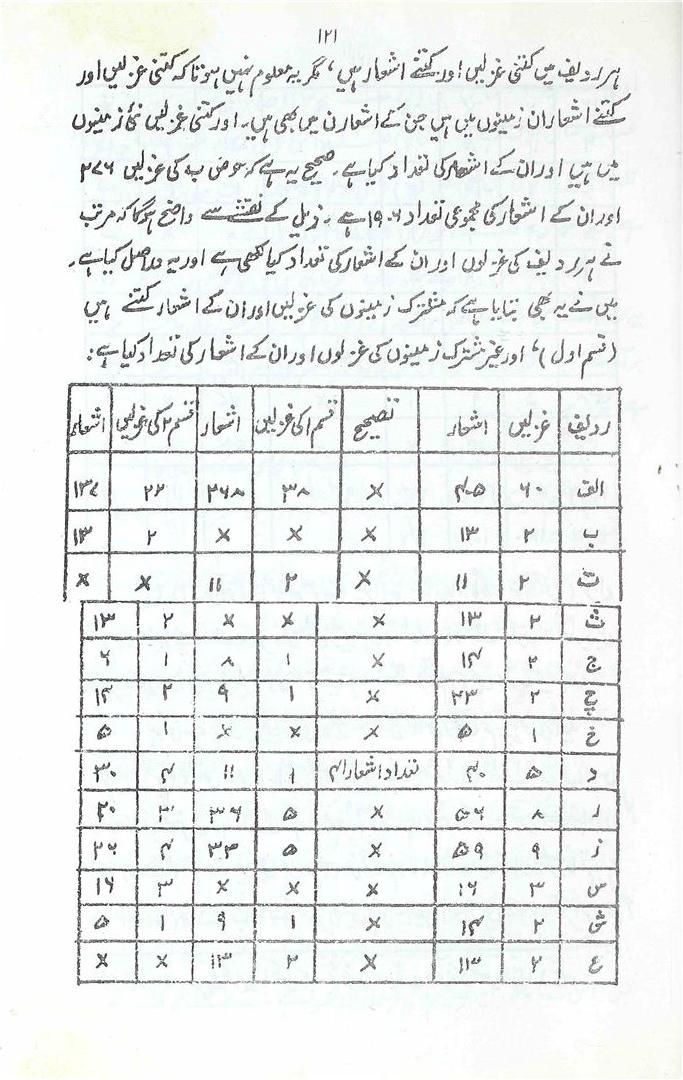 ۱۲۱
ہر ردیف میں کتنی غزلیں اور کتنے اشعار ہیں، مگر یہ معلوم نہیں ہوتا کہ کتنی غزلیں اور
کتنے اشعار ان زمینوں میں ہیں جن کے اشعار ن میں بھی ہیں۔ اور کتنی غزلیں نئی زمینوں
میں ہیں اور ان کے اشعار کی تعداد کیا ہے۔ صحیح یہ ہے کہ حوض ب کی غزلیں ۲۷۶
اور ان کے اشعار کی مجموعی تعداد ۱۹۰۶ ہے۔ ذیل کے نقشے سے واضح ہوگا کہ مرتب
نے ہر ردیف کی غزلوں اور ان کے اشعار کی تعداد کیا لکھی ہے اور یہ دراصل کیا ہے۔
میں نے یہ بھی بتایا ہے کہ مشترک زمینوں کی غزلیں اور ان کے اشعار کتنے ہیں
(قسم اول)، اور غیر مشترک زمینوں کی غزلوں اور ان کے اشعار کی تعداد کیا ہے:
ردیف غزلیں اشعار تصحیح قسم ۱ کی غزلیں اشعار قسم ۲ کی غزلیں اشعار
الف ۶۰ ۴۰۵ × ۳۸ ۲۶۸ ۲۲ ۱۳۷
ب ۲ ۱۳ × × × ۲ ۱۳
ت ۲ ۱۱ × ۲ ۱۱ × ×
ث ۲ ۱۳ × × × ۲ ۱۳
ج ۲ ۱۴ × ۱ ۸ ۱ ۶
چ ۲ ۲۳ × ۱ ۹ ۲ ۱۴
خ ۱ ۵ × × × ۱ ۵
د ۵ ۴۰ تعداد اشعار ۴۱ ۱ ۱۱ ۴ ۳۰
ر ۸ ۵۶ × ۵ ۳۶ ۳ ۲۰
ز ۹ ۵۹ × ۵ ۳۳ ۴ ۲۶
س ۳ ۱۶ × × × ۳ ۱۶
ش ۲ ۱۴ × ۱ ۹ ۱ ۵
ع ۲ ۱۳ × ۲ ۱۳ × ×